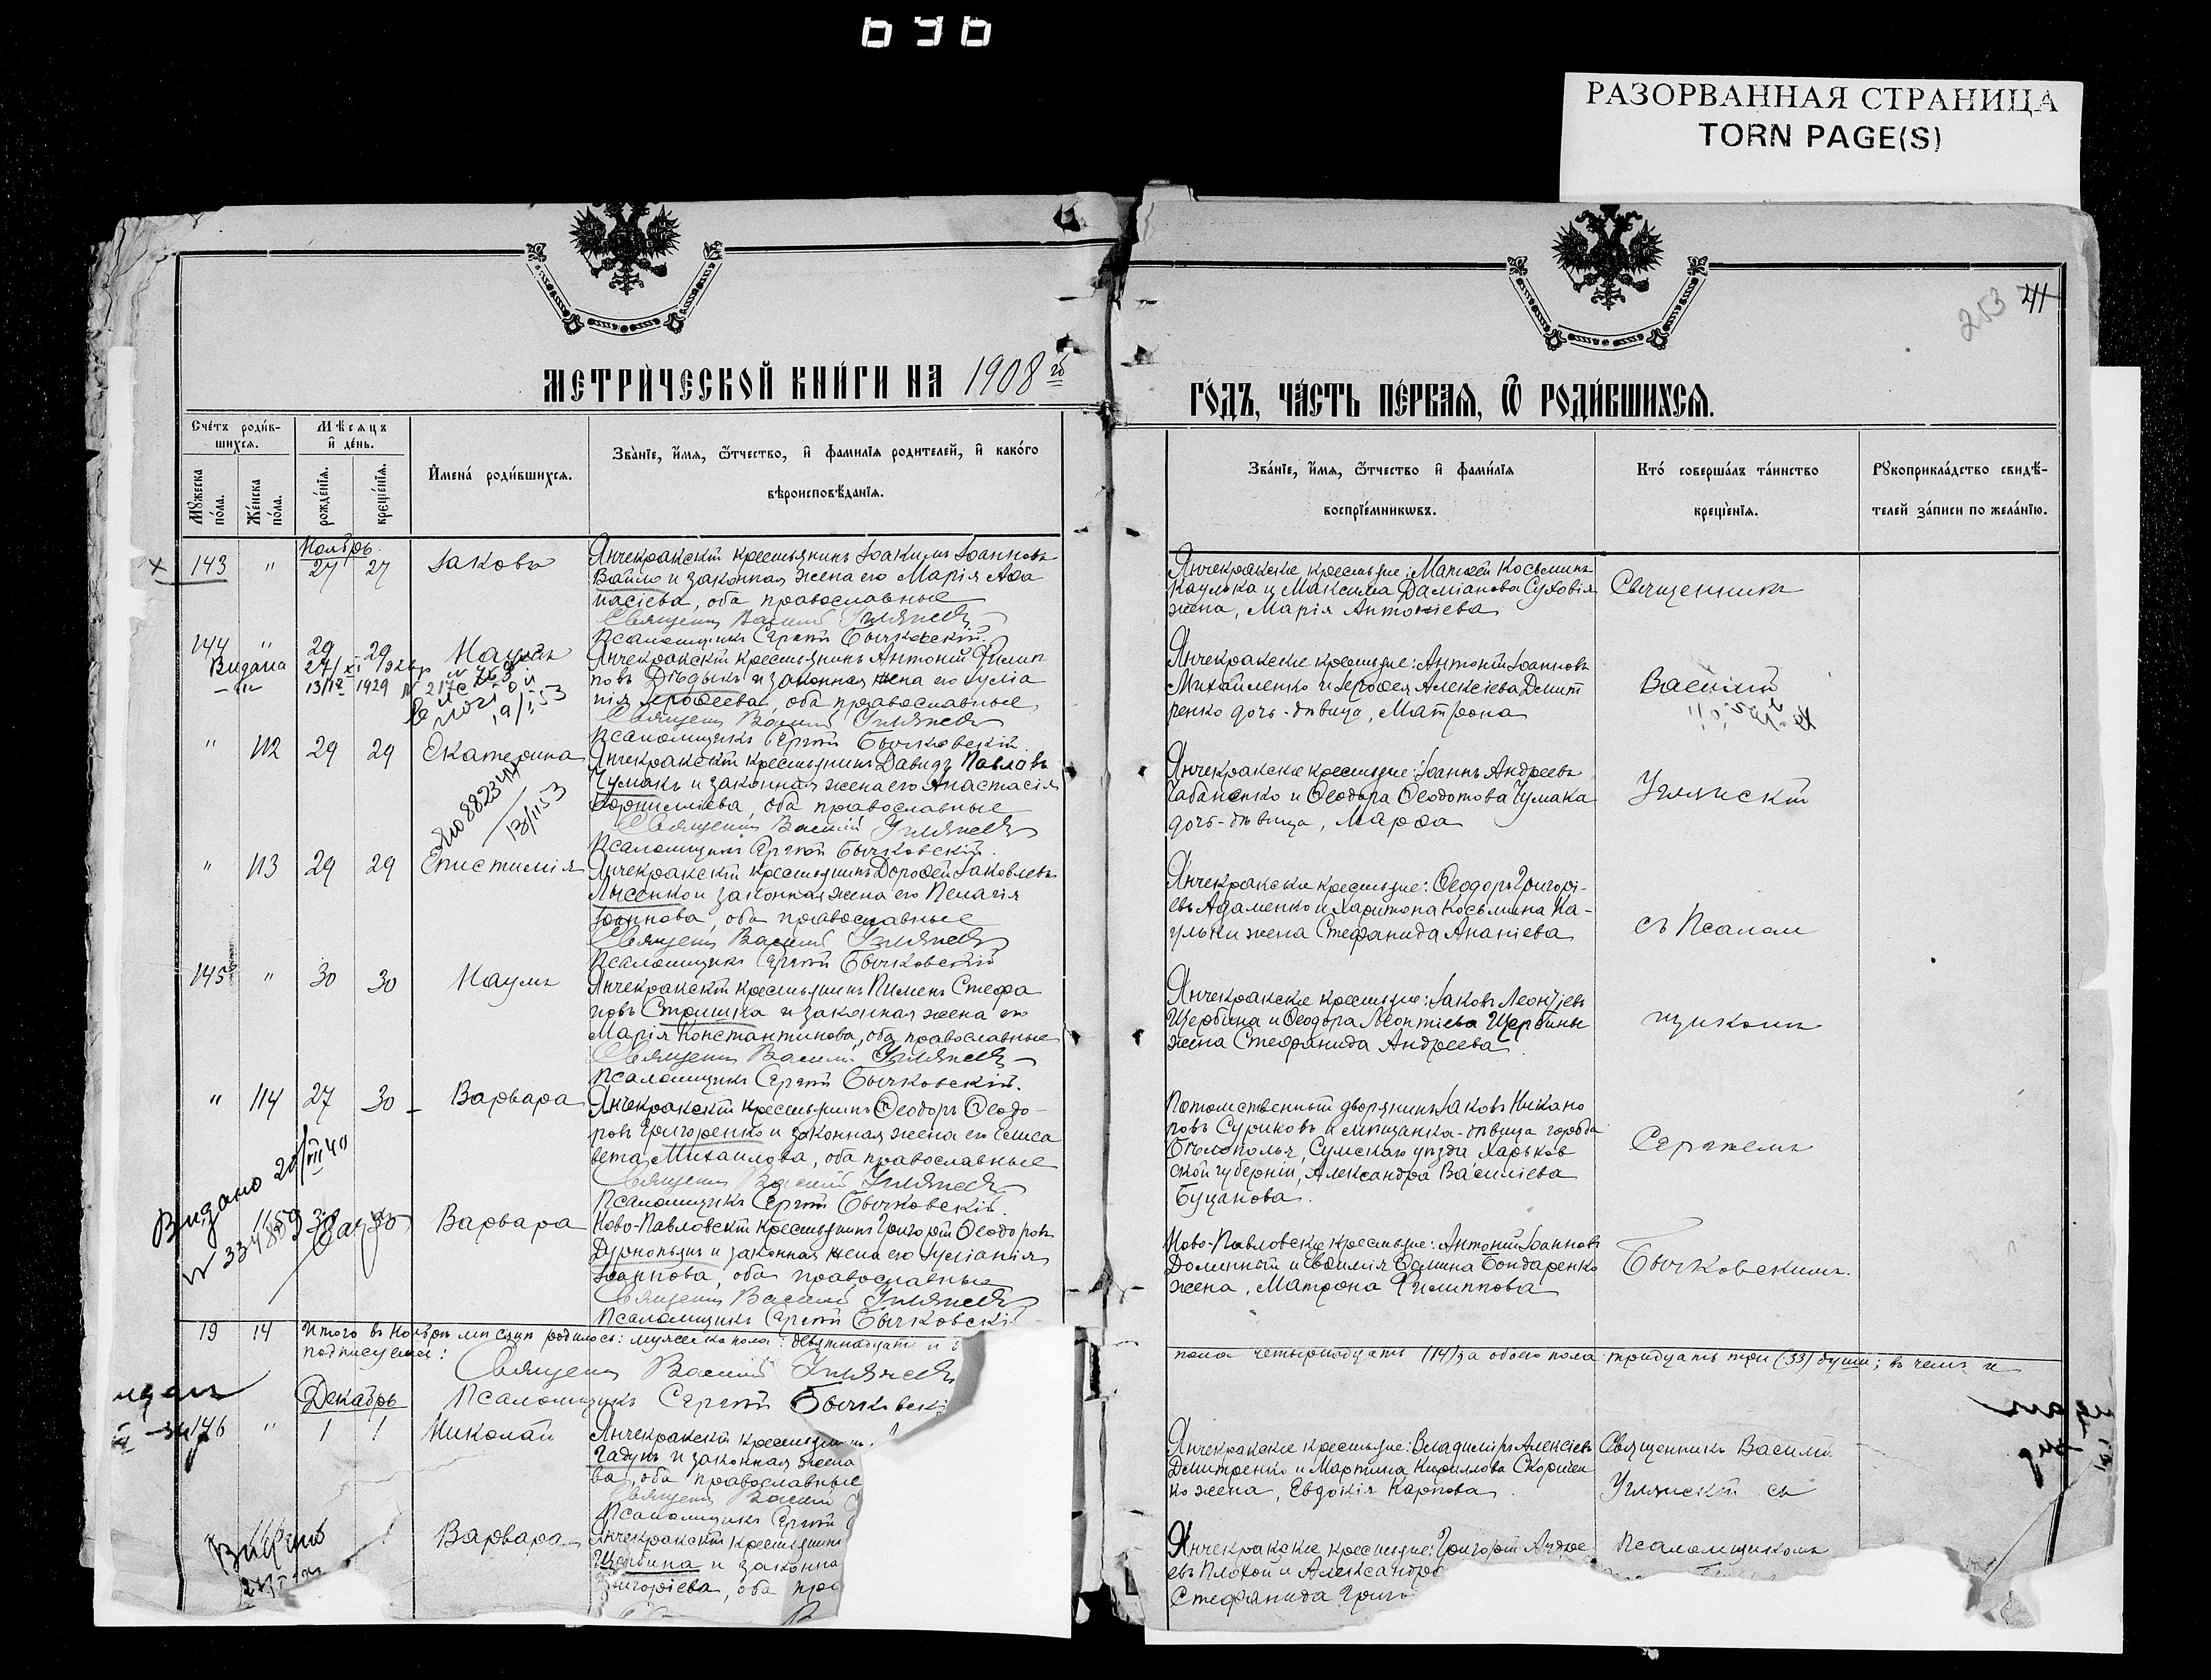 РАЗОРВАННАЯ СТРАНИЦА
TORN PAGE(S)
253 41
МЕТРИ́ЧЕСКОЙ КНИ́ГИ НА 1908 й
ГО́ДЪ, ЧА́СТЬ ПЕ́РВАЯ, Ѽ РОДИ́ВШИХСЯ.
Сче́тъ роди́в-
шихся.
Мѣсяцъ
и де́нь.
Мꙋжеска по́ла.
Же́нска по́ла.
рожде́нїя.
креще́нїя.
Имена́ роди́вшихся.
Зва́нїе, и́мя, ѿтчество, и фамилїя родителей, и како́го
вѣроисповѣ́данїя.
Зва́нїе, и́мя, ѿтчество и фами́лїя
воспрїе́мникѡвъ.
Кто́ соверша́лъ та́инство
креще́нїя.
Рꙋкоприкла́дство свидѣ-
телей за́писи по жела́нїю.
Ноябрь.
143 " 27 27 Іаковъ
Янчекракскій крестьянинъ Іоакимъ Іоанновъ
Вайло и законная жена его Марія Аѳа
насіева, оба православные
Священ. Василій Углянскій
Псаломщикъ Сергій Бычковскій.
Янчекракские крестьяне: Матѳей Косьминъ
Каулька и Максима Даміанова Суховія
жена, Марія Антоніева
Священникъ
144 " 29 29 Наумъ
Видана 27/XI
13/12 1929
19/I 53
Янчекракскій крестьянинъ Антоній Филип
повъ Дѣдыкъ и законная жена его Іуліа
нія Іероѳеева, оба православные
Священ. Василій Углянскій
Псаломщикъ Сергій Бычковскій.
Янчекракские крестьяне: Антоній Іоанновъ
Михайленко и Іероѳея Алексіева Дмит
ренко дочь-дѣвица, Матрона
Василій
" 112 29 29 Екатерина
882344
13/II 53
Янчекракскій крестьянинъ Давидъ Павловъ
Чумакъ и законная жена его Анастасія
Корнилліева, оба православные
Священ. Василій Углянскій
Псаломщикъ Сергій Бычковскій.
Янчекракские крестьяне: Іоаннъ Андреевъ
Чабаненко и Ѳеодора Ѳеодотова Чумака
дочь-дѣвица, Марѳа
Углянскій
" 113 29 29 Епистимія
Янчекракскій крестьянинъ Дороѳей Іаковлевъ
Лысенко и законная жена его Пелагія
Іоаннова, оба православные
Священ. Василій Углянскій
Псаломщикъ Сергій Бычковскій
Янчекракские крестьяне: Ѳеодоръ Григорі-
евъ Адаменко и Харитона Косьмина Ка-
ульки жена Стефанида Ананіева
съ Псалом
145 " 30 30 Наумъ
Янчекракскій крестьянинъ Пименъ Стефа
новъ Стришка и законная жена его
Марія Константинова, оба православные
Священ. Василій Углянскій
Псаломщикъ Сергій Бычковскій.
Янчекракские крестьяне: Іаковъ Леонтіевъ
Щербина и Ѳеодора Леонтіева Щербины
жена Стефанида Андреева
щикомъ
" 114 27 30 Варвара
Янчекракскій крестьянинъ Ѳеодоръ Ѳеодо-
ровъ Григоренко и законная жена его Елиса
вета Михаилова, оба православные
Священ. Василій Углянскій
Псаломщикъ Сергій Бычковскій.
Потомственный дворянинъ Іаковъ Никано
ровъ Суриковъ и мѣщанка-дѣвица города
Бѣлополья, Сумскаго уѣзда Харьков
ской губерніи, Александра Василіева
Буцанова.
Сергіемъ
Видано
115 30 30 Варвара
Ново-Павловскій крестьянинъ Григорій Ѳеодоровъ
Дурнопьянъ и законная жена его Іуліанія
Іоаннова, оба православные
Священ. Василій Углянскій
Псаломщикъ Сергій Бычковскі
Ново-Павловские крестьяне: Антоній Іоанновъ
Долинный и Евѳимія Ѳомина Бондаренко
жена, Матрона Филиппова
Бычковскимъ.
19 14 Итого въ Ноябрѣ мѣсяцѣ родилось: мужеска пола: девятнадцать и
пола четырнадцать (14) за обоего пола тридцать три (33) души; въ чемъ и
подписуемся:
Священ. Василій Углянскій
Псаломщикъ Сергій Бычковскі
Декабрь
146 " 1 1 Николай
Янчекракскій крестьянинъ
Гадунъ и законная жена
ва, оба православные
Священ. Василій
Псаломщикъ Сергій
Янчекракские крестьяне: Владиміръ Алексіевъ
Дмитренко и Мартина Кириллова Скоричен
ко жена, Евдокія Карпова
Священникъ Василій
Углянскій съ
Варвара
Янчекракскій крестьянинъ
Щербина и законна
Григоріева, оба пра
Янчекракские крестьяне: Григорій Андре
евъ Плохой и Александра
Стефанида Григо
Псаломщикомъ